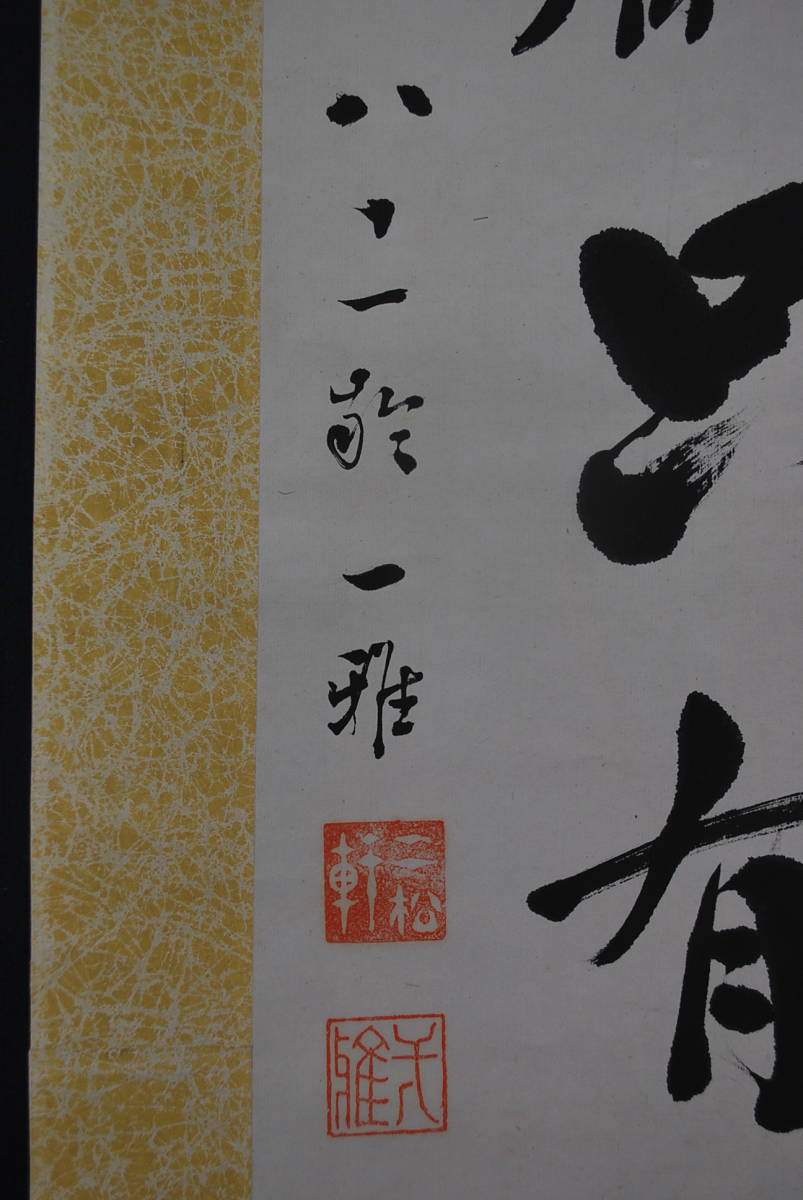 只有
八十一齢 一雅
二松軒